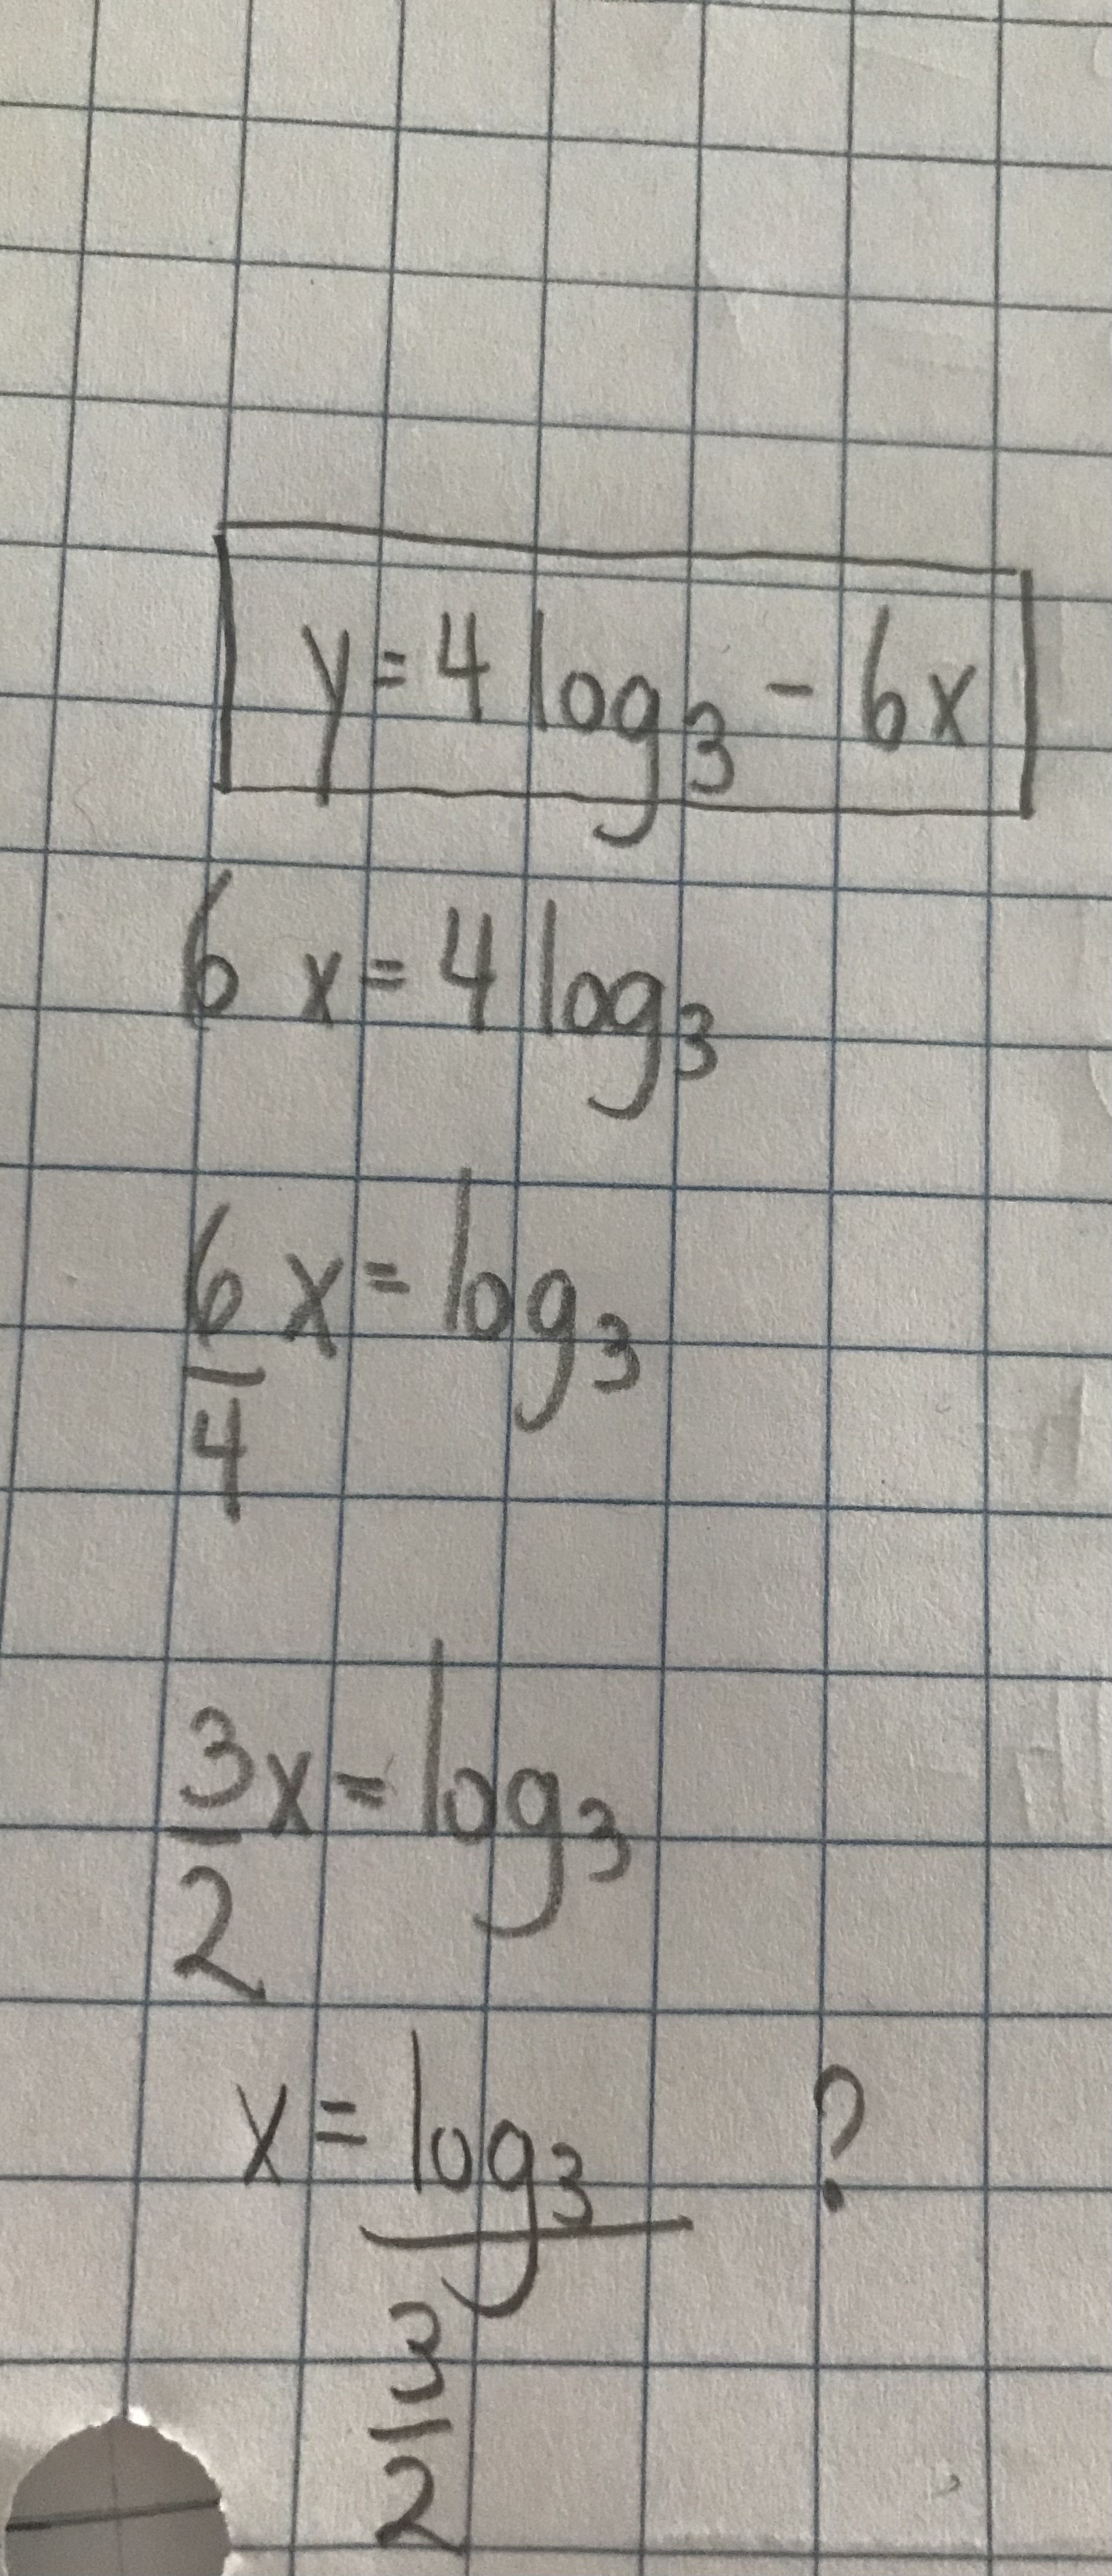 y = 4 log₃ - 6x
6 x = 4 log₃
6/4 x = log₃
3/2 x = log₃
x = log₃ / 3/2 ?